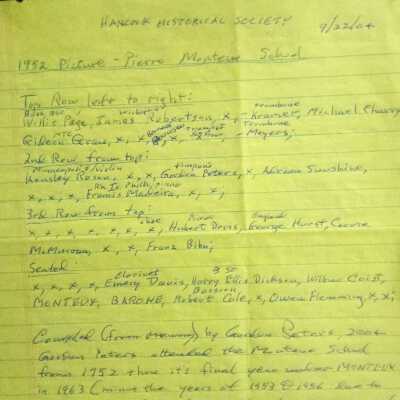 HANCOCK HISTORICAL SOCIETY 9/22/04
1952 Picture - Pierre Monteux School
Top Row left to right:
Willis Page, James Robertson, x, - Kramer, Michael Charry
Trombone
Gideon Grau, x, x, x, - Meyers,
2nd Row from top:
Kensley Rosen, x, x, Gordon Peters, x, Adrian Sunshine,
x, x, x, Francis Madeira, x, x,
3rd Row from top:
oboe
x, x, x, x, x, Hubert Doris, George Hurst,
McMorrow, x, x, Franz Bibo,
Seated:
Clarinet
x, x, x, x, Emery Davis, Harry Ellis Dickson,
Bassoon
MONTEUX, BARONE, Robert Cole, x, Owen Flemming, x, x,
Compiled (from memory) by Gordon Peters, 2004
Gordon Peters attended the Monteux School
from 1952 thru it's final year under MONTEUX
in 1963 (minus the years of 1953 & 1956 due to